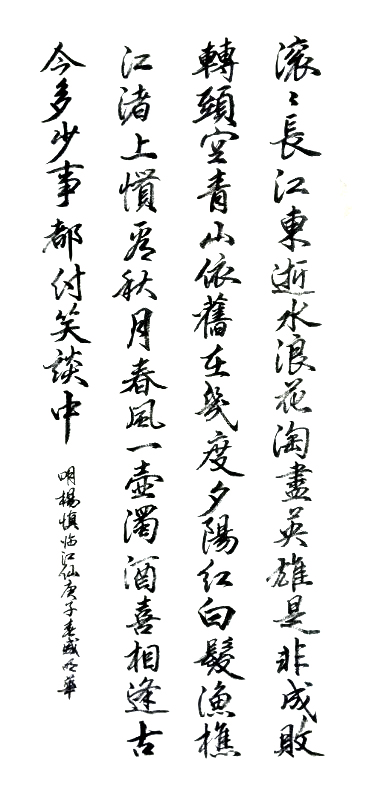 滚〻長江東逝水浪花淘盡英雄是非成敗
轉頭空青山依舊在幾度夕陽紅白髮漁樵
江渚上慣看秋月春風一壺濁酒喜相逢古
今多少事都付笑談中
明楊慎临江仙庚子春盛